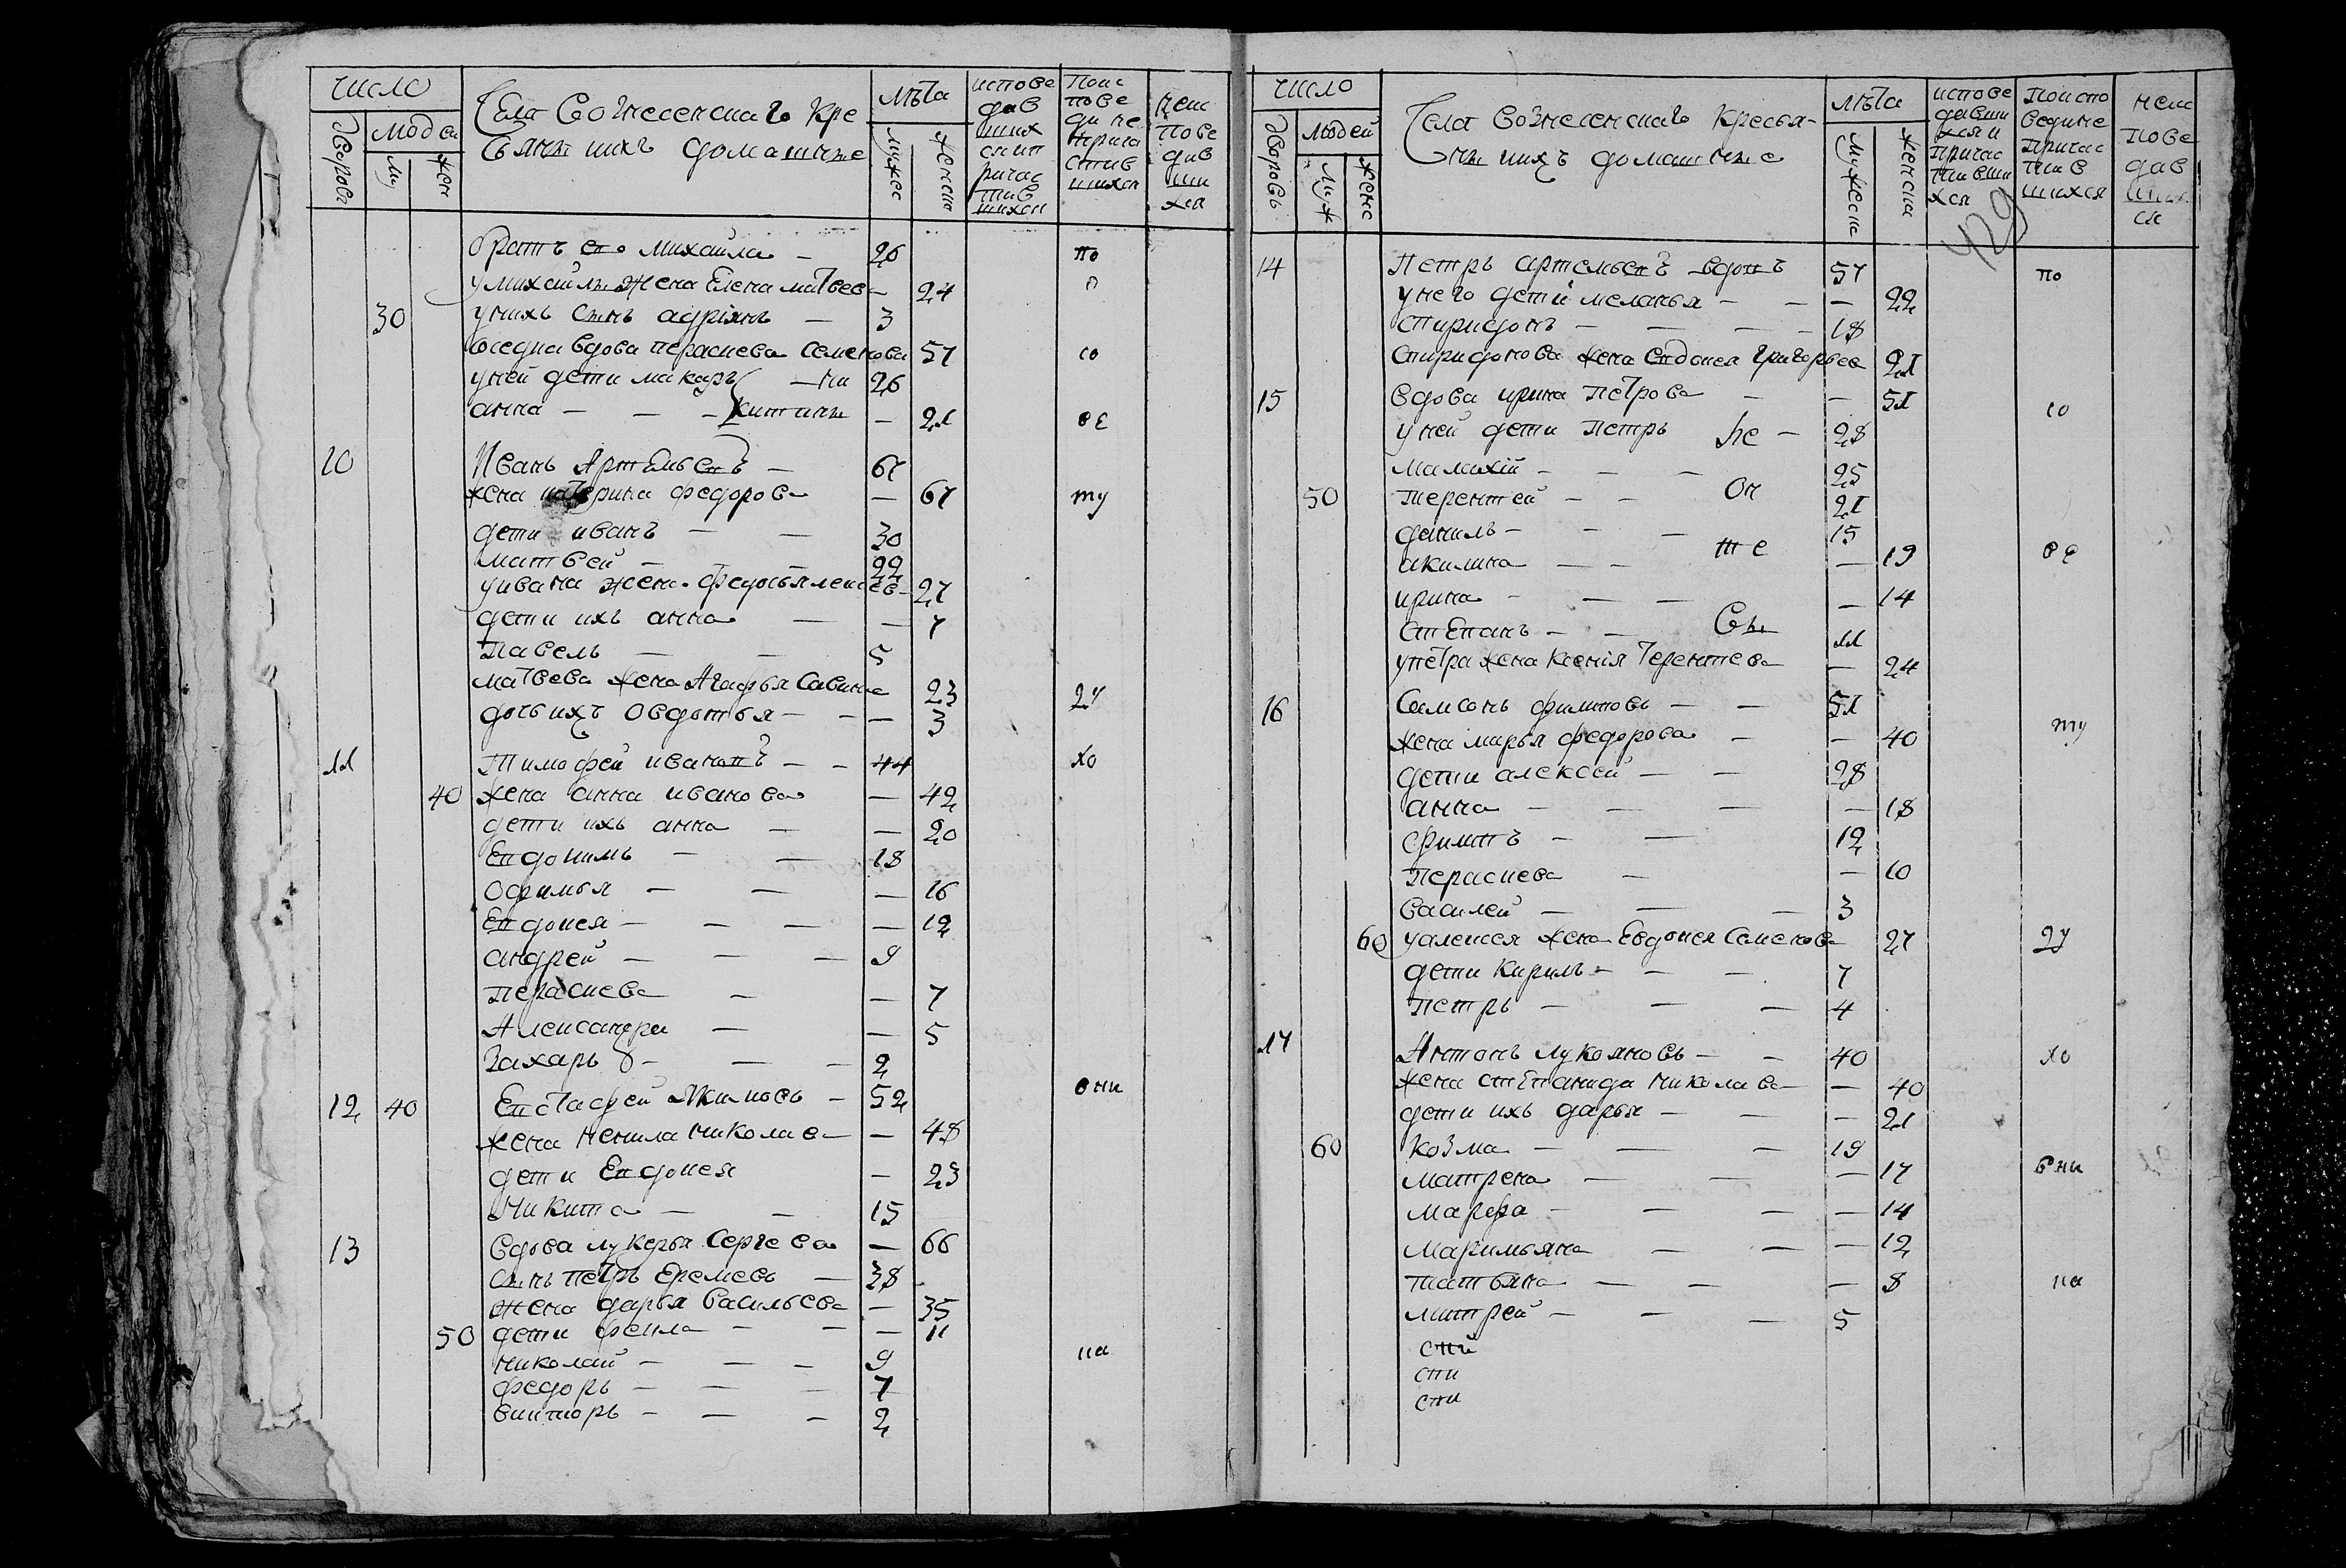 число
людеи
дворовъ
му
жен
Села Вознесенскаго кре
стьянъ ихъ домашние
лѣта
мужес
женска
испове
дав
ших
сяип
ричас
тив
шихся
Поис
пове
ди не
прича
стив
шихся
неис
пове
дав
ши
хся
братъ его михаила — 26 по
умихаилы жена Елена матвеев — 24
30 унихъ сынъ адріянъ — 3
соседка вдова пераскева семенова 57 со
уней дети макаръ — ни 26
анна — — — китины — 21 ве
10 Иванъ Артемьевъ — 67
жена катерина федорова — 67 ту
дети иванъ — — 30
матвей — — 22
уивана жена федосья алексеев — 27
дети ихъ анна — — 7
павелъ — — 5
матвева жена Агафья Савина 23 гу
дочь ихъ овдотья — — — 3
11 Тимофеи ивановъ — — 44 хо
40 жена анна иванова — 42
дети ихъ анна — — 20
Евдокимъ — — 18
офимья — — — 16
Евдокея — — — — 12
андрей — — — 9
пераскева — — 7
Александра — — 5
Захаръ — — — 2
12 40 Евстафеи Акимовъ — 52 вни
жена ненила николаева — — 48
дети Евдокея — 23
Никита — — 15
13 вдова лукерья Сергева — 66
сынъ петръ еремевъ — 38
жена дарья васильева — 35
50 дети фекла — — — 11
николай — — — 9 ка
федоръ — — — 7
викторъ — — — 2
число
дворовъ
людей
муж
жене
Села вознесенскаго кресья-
нъ ихъ домашние
лѣта
мужеска
женска
испове
давши
хся и
причас
тивши
хся
Поиспо
ведине
причас
тив
шихся
неис
пове
дав
ших
ся
429
14 Петръ артемьевъ вдовъ 57 по
унего дети меланья — — — 22
спиридонъ — — — — 18
спиридонова жена евдокея григорьева 21
15 вдова ирина Петрова — — 51 со
уней дети петръ не — 28
малихій — — — 25
50 терентеи — — он 21
данилъ — — 15
акилина — — те — 19 ве
ирина — — — — 14
степанъ — — сы 11
упетра жена ксенія терентева — 24
16 Самсонъ филиповъ — — 51
жена марья федорова — — 40 ту
дети алексей — — 28
анна — — — — 18
филипъ — — 12
пераскева — — 10
василей — — — 3
60 уалексея жена Евдокея Семенова 27 гу
дети кирилъ — — — 7
петръ — — — 4
17 Антонъ лукояновъ — — 40 хо
жена степанида николаева — — 40
дети ихъ дарья — — — 21
60 козма — — — 19
матрена — — — 17 вни
марфа — — — — 14
маримьяна — — — 12
татьяна — — — 8 ка
митрей — — — 5
сти
сти
сти